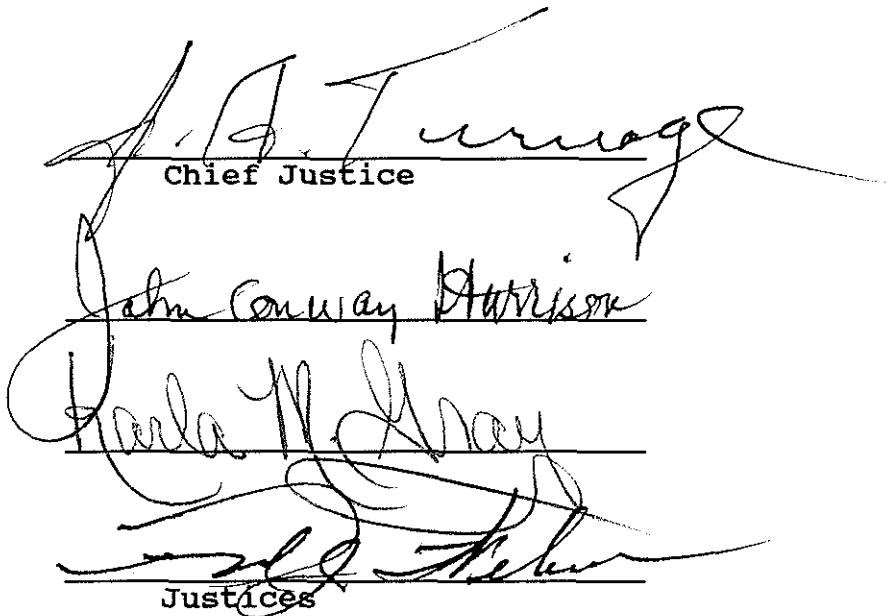 J. A. Turnage
Chief Justice
John Conway Harrison
Karla M. Gray
Justices